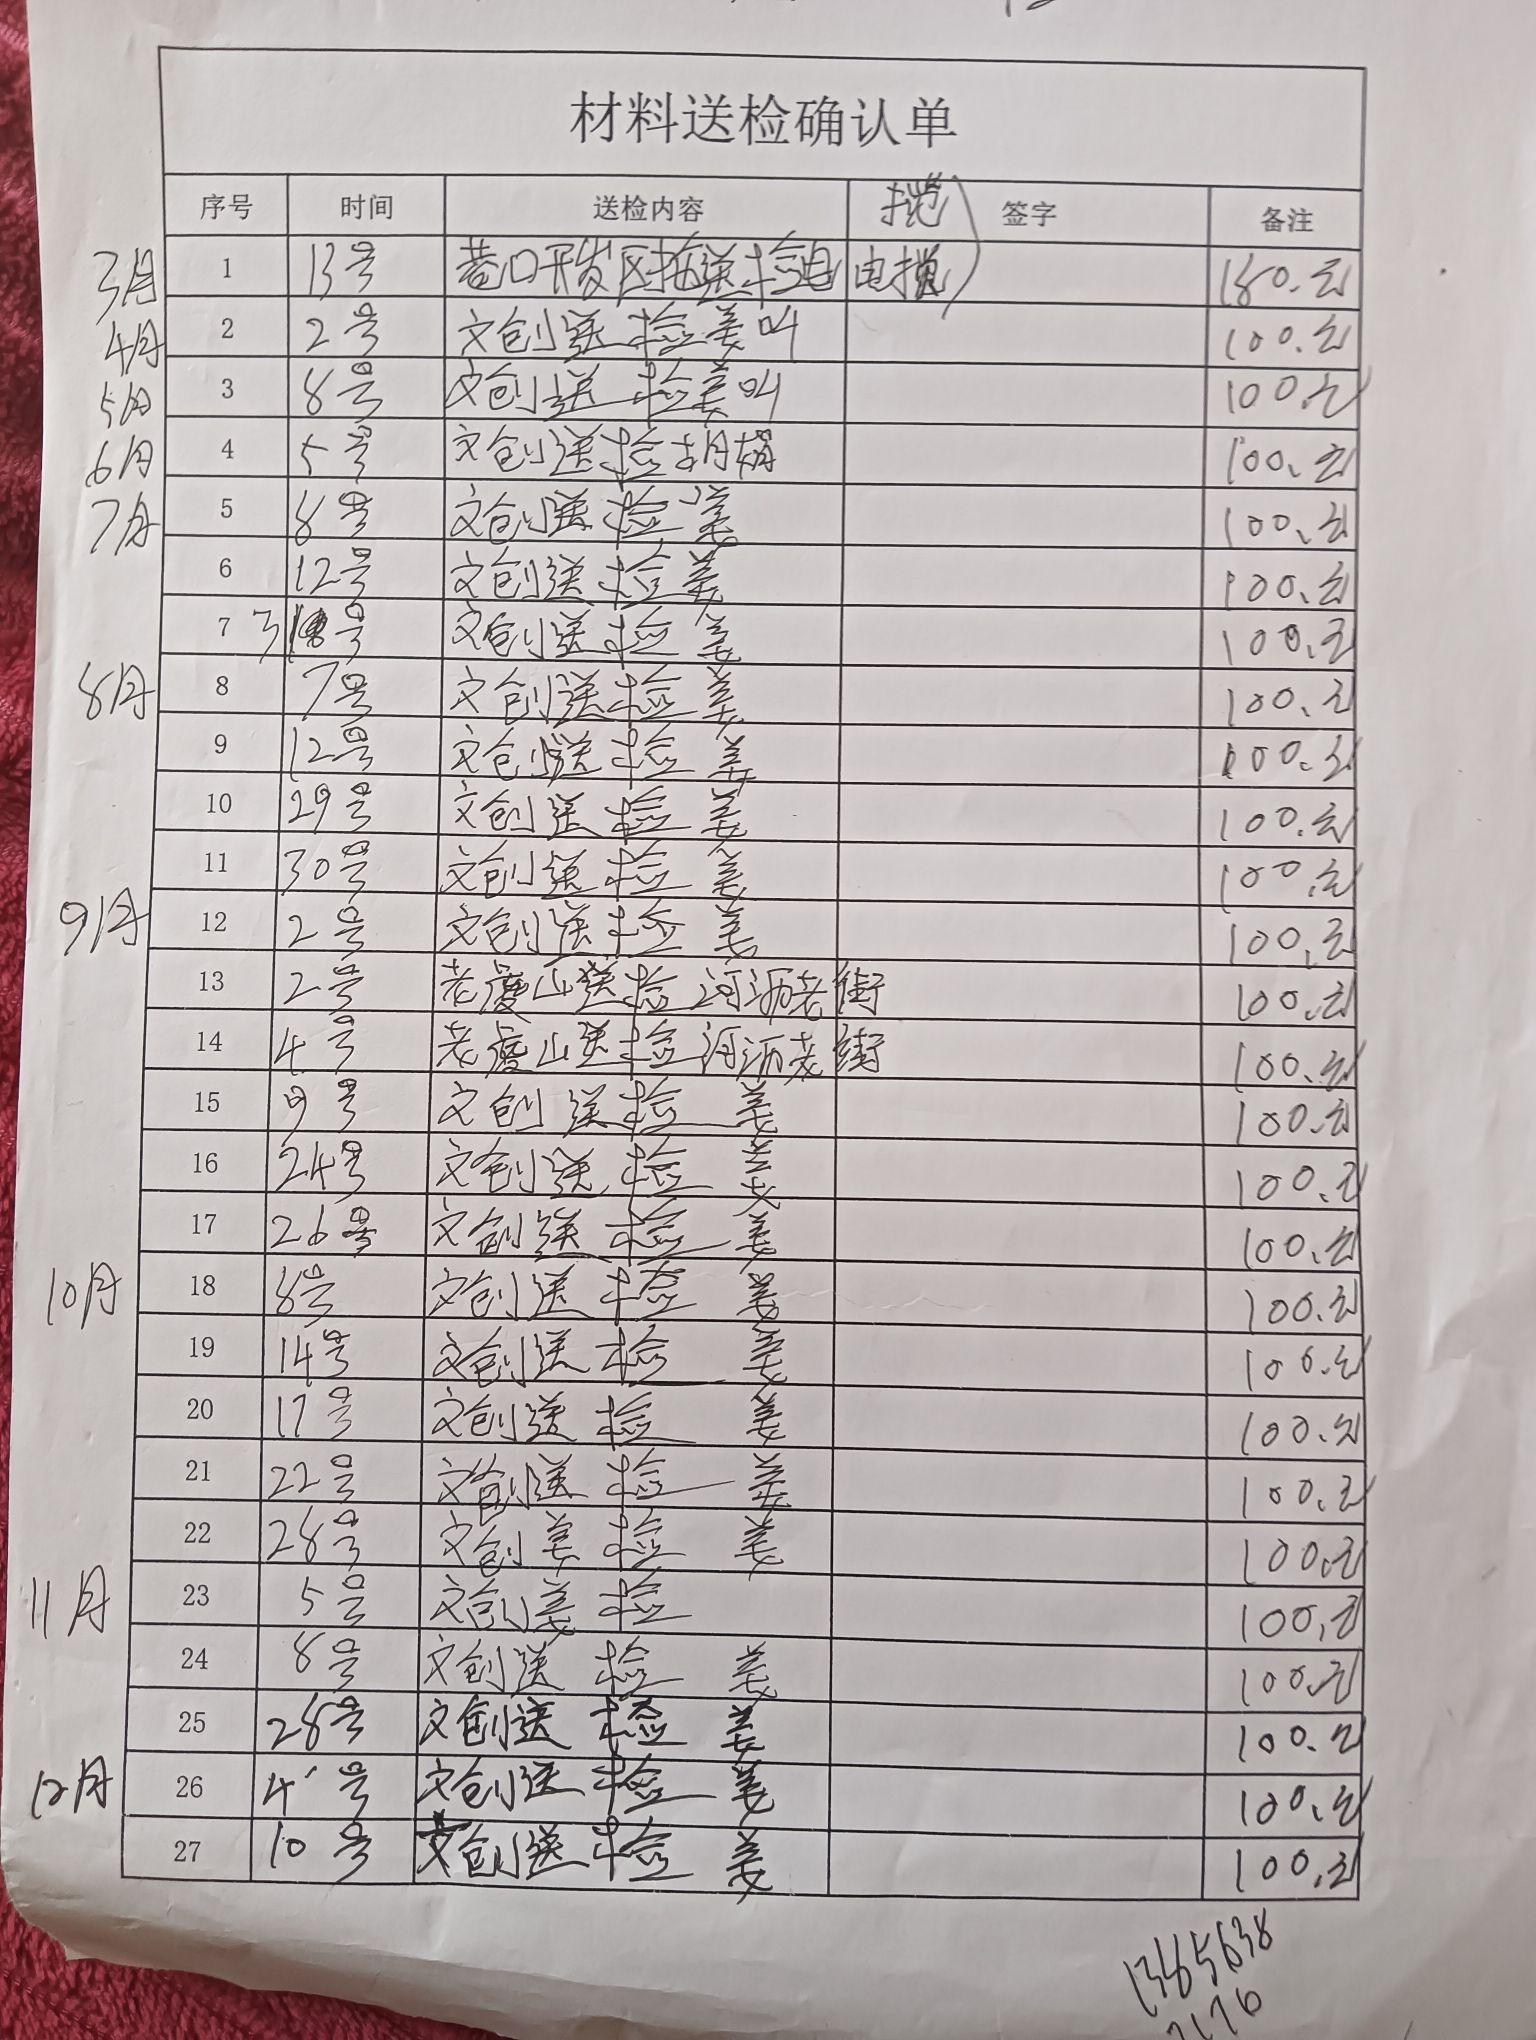 材料送检确认单
序号 时间 送检内容 签字 备注
3月 1 13号 巷口开发区抽送检电 电揽 180.元
4月 2 2号 文创送检姜叫 100.元
5月 3 8号 文创送检姜叫 100.元
6月 4 5号 文创送检胡娟 100.元
7月 5 8号 文创送检姜 100.元
6 12号 文创送检姜 100.元
7 号 文创送检姜 100.元
8月 8 7号 文创送检姜 100.元
9 12号 文创送检姜 100.元
10 29号 文创送检姜 100.元
11 30号 文创送检姜 100.元
9月 12 2号 文创送检姜 100.元
13 2号 老虎山送检河沥老街 100.元
14 4号 老虎山送检河沥老街 100.元
15 9号 文创送检姜 100.元
16 24号 文创送检姜 100.元
17 26号 文创送检姜 100.元
10月 18 8号 文创送检姜 100.元
19 14号 文创送检姜 100.元
20 17号 文创送检姜 100.元
21 22号 文创送检姜 100.元
22 28号 文创姜检姜 100.元
11月 23 5号 文创姜检 100.元
24 8号 文创送检姜 100.元
25 28号 文创送检姜 100.元
12月 26 4号 文创送检姜 100.元
27 10号 文创送检姜 100.元